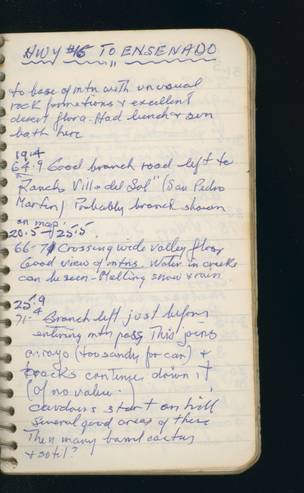 HWY #16 TO ENSENADO
"
to base of mtn with unusual
rock formations & excellent
desert flora. Had lunch & sun
bath here
19.4
64.9 Good branch road left to
"Rancho Villa del Sol" (San Pedro
Martin) Probably branch shown
on map.
20.5 → 25.5.
66-71 Crossing wide valley floor
Good view of mtns. Water in creeks
can be seen - Melting snow & rain
25.9
71.4 Branch left just before
entering mtn pass. This joins
arroyo (too sandy for car) &
tracks continue down it
(of no value.)
cardons start on hill
Several good areas of these
Then many barrel cactus
& sotol?